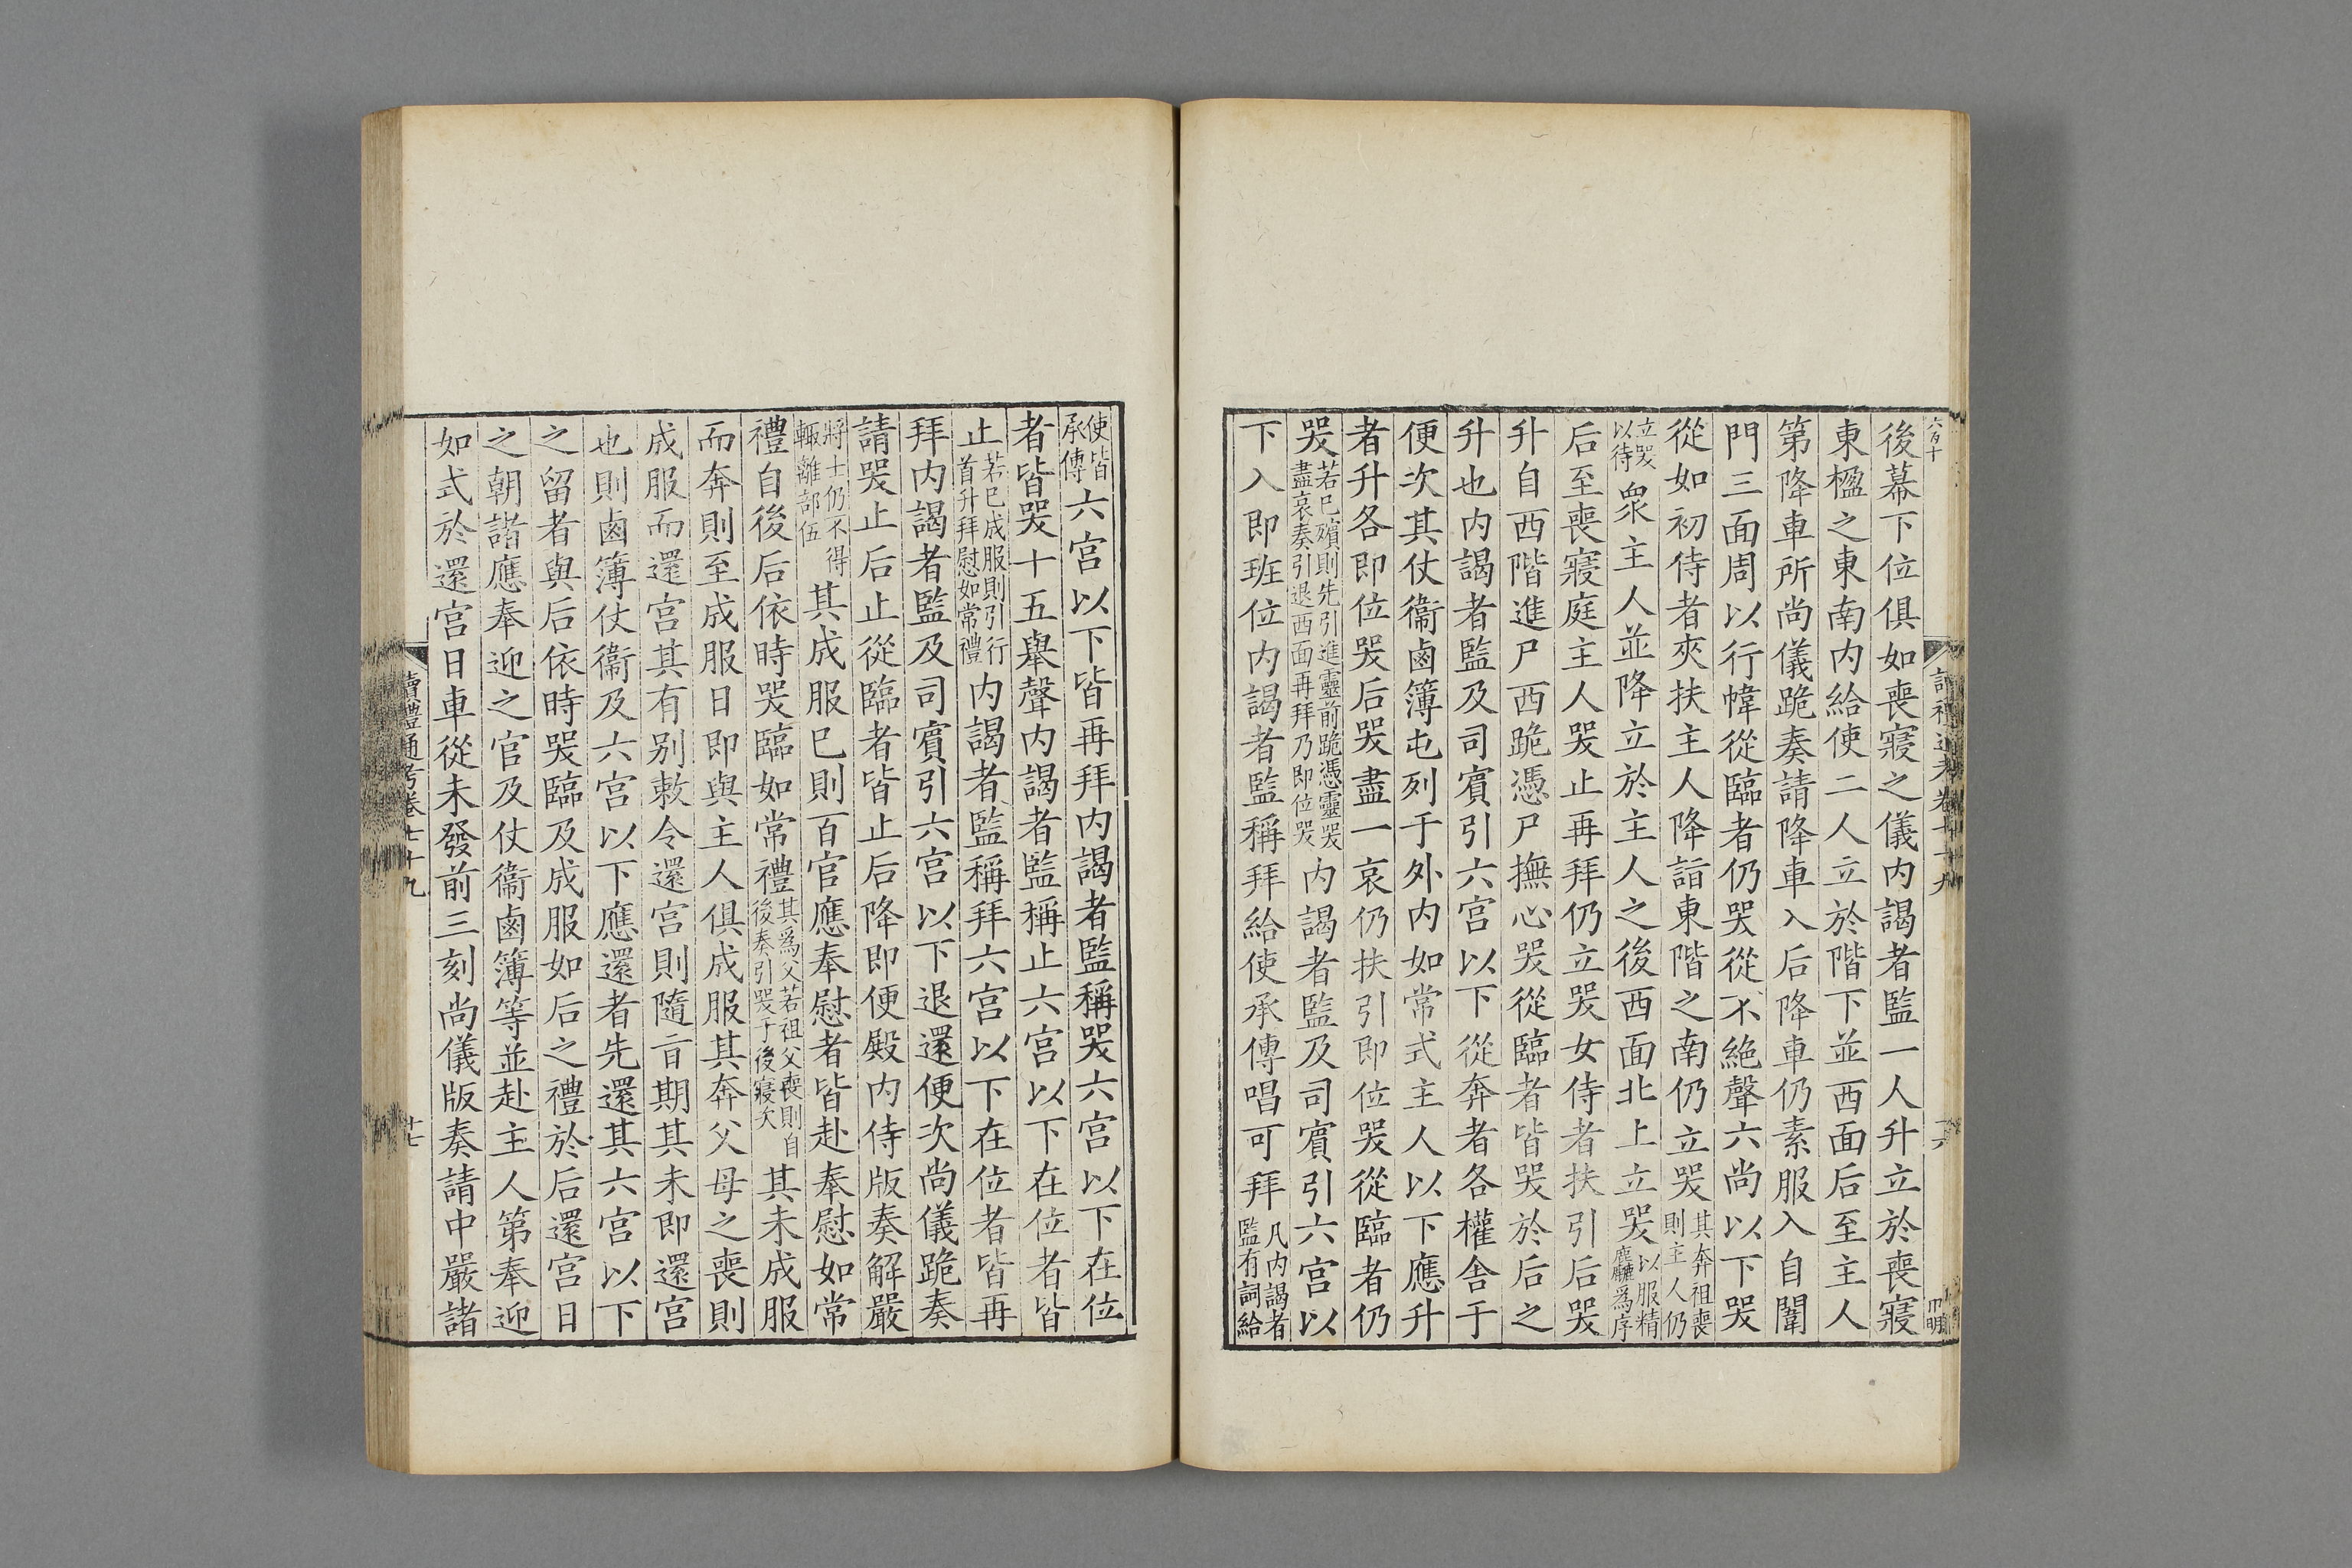 後幕下位俱如喪寢之儀内謁者監一人升立於喪寢
東楹之東南内給使二人立於階下並西面后至主人
第降車所尚儀跪奏請降車入后降車仍素服入自闈
門三面周以行幃從臨者仍哭從不絶聲六尚以下哭
從如初侍者夾扶主人降詣東階之南仍立哭其奔祖喪則主人仍
立哭以待衆主人並降立於主人之後西面北上立哭以服精麤爲序
后至喪寢庭主人哭止再拜仍立哭女侍者扶引后哭
升自西階進尸西跪憑尸撫心哭從臨者皆哭於后之
升也内謁者監及司賓引六宫以下從奔者各權舍于
便次其仗衞鹵簿屯列于外内如常式主人以下應升
者升各即位哭后哭盡一哀仍扶引即位哭從臨者仍
哭若已殯則先引進靈前跪憑靈哭盡哀奏引退西面再拜乃即位哭内謁者監及司賓引六宫以
下入即班位内謁者監稱拜給使承傳唱可拜凡内謁者監有詞給
使皆承傳六宫以下皆再拜内謁者監稱哭六宫以下在位
者皆哭十五舉聲内謁者監稱止六宫以下在位者皆
止若已成服則引行首升拜慰如常禮内謁者監稱拜六宫以下在位者皆再
拜内謁者監及司賓引六宫以下退還便次尚儀跪奏
請哭止后止從臨者皆止后降即便殿内侍版奏解嚴
將士仍不得輙離部伍其成服已則百官應奉慰者皆赴奉慰如常
禮自後后依時哭臨如常禮其爲父若祖父喪則自後奏引哭于後寢次其未成服
而奔則至成服日即與主人俱成服其奔父母之喪則
成服而還宫其有别敕令還宫則隨旨期其未即還宫
也則鹵簿仗衞及六宫以下應還者先還其六宫以下
之留者與后依時哭臨及成服如后之禮於后還宫日
之朝諸應奉迎之官及仗衞鹵簿等並赴主人第奉迎
如式於還宫日車從未發前三刻尚儀版奏請中嚴諸
讀禮通考卷七十九
廿七